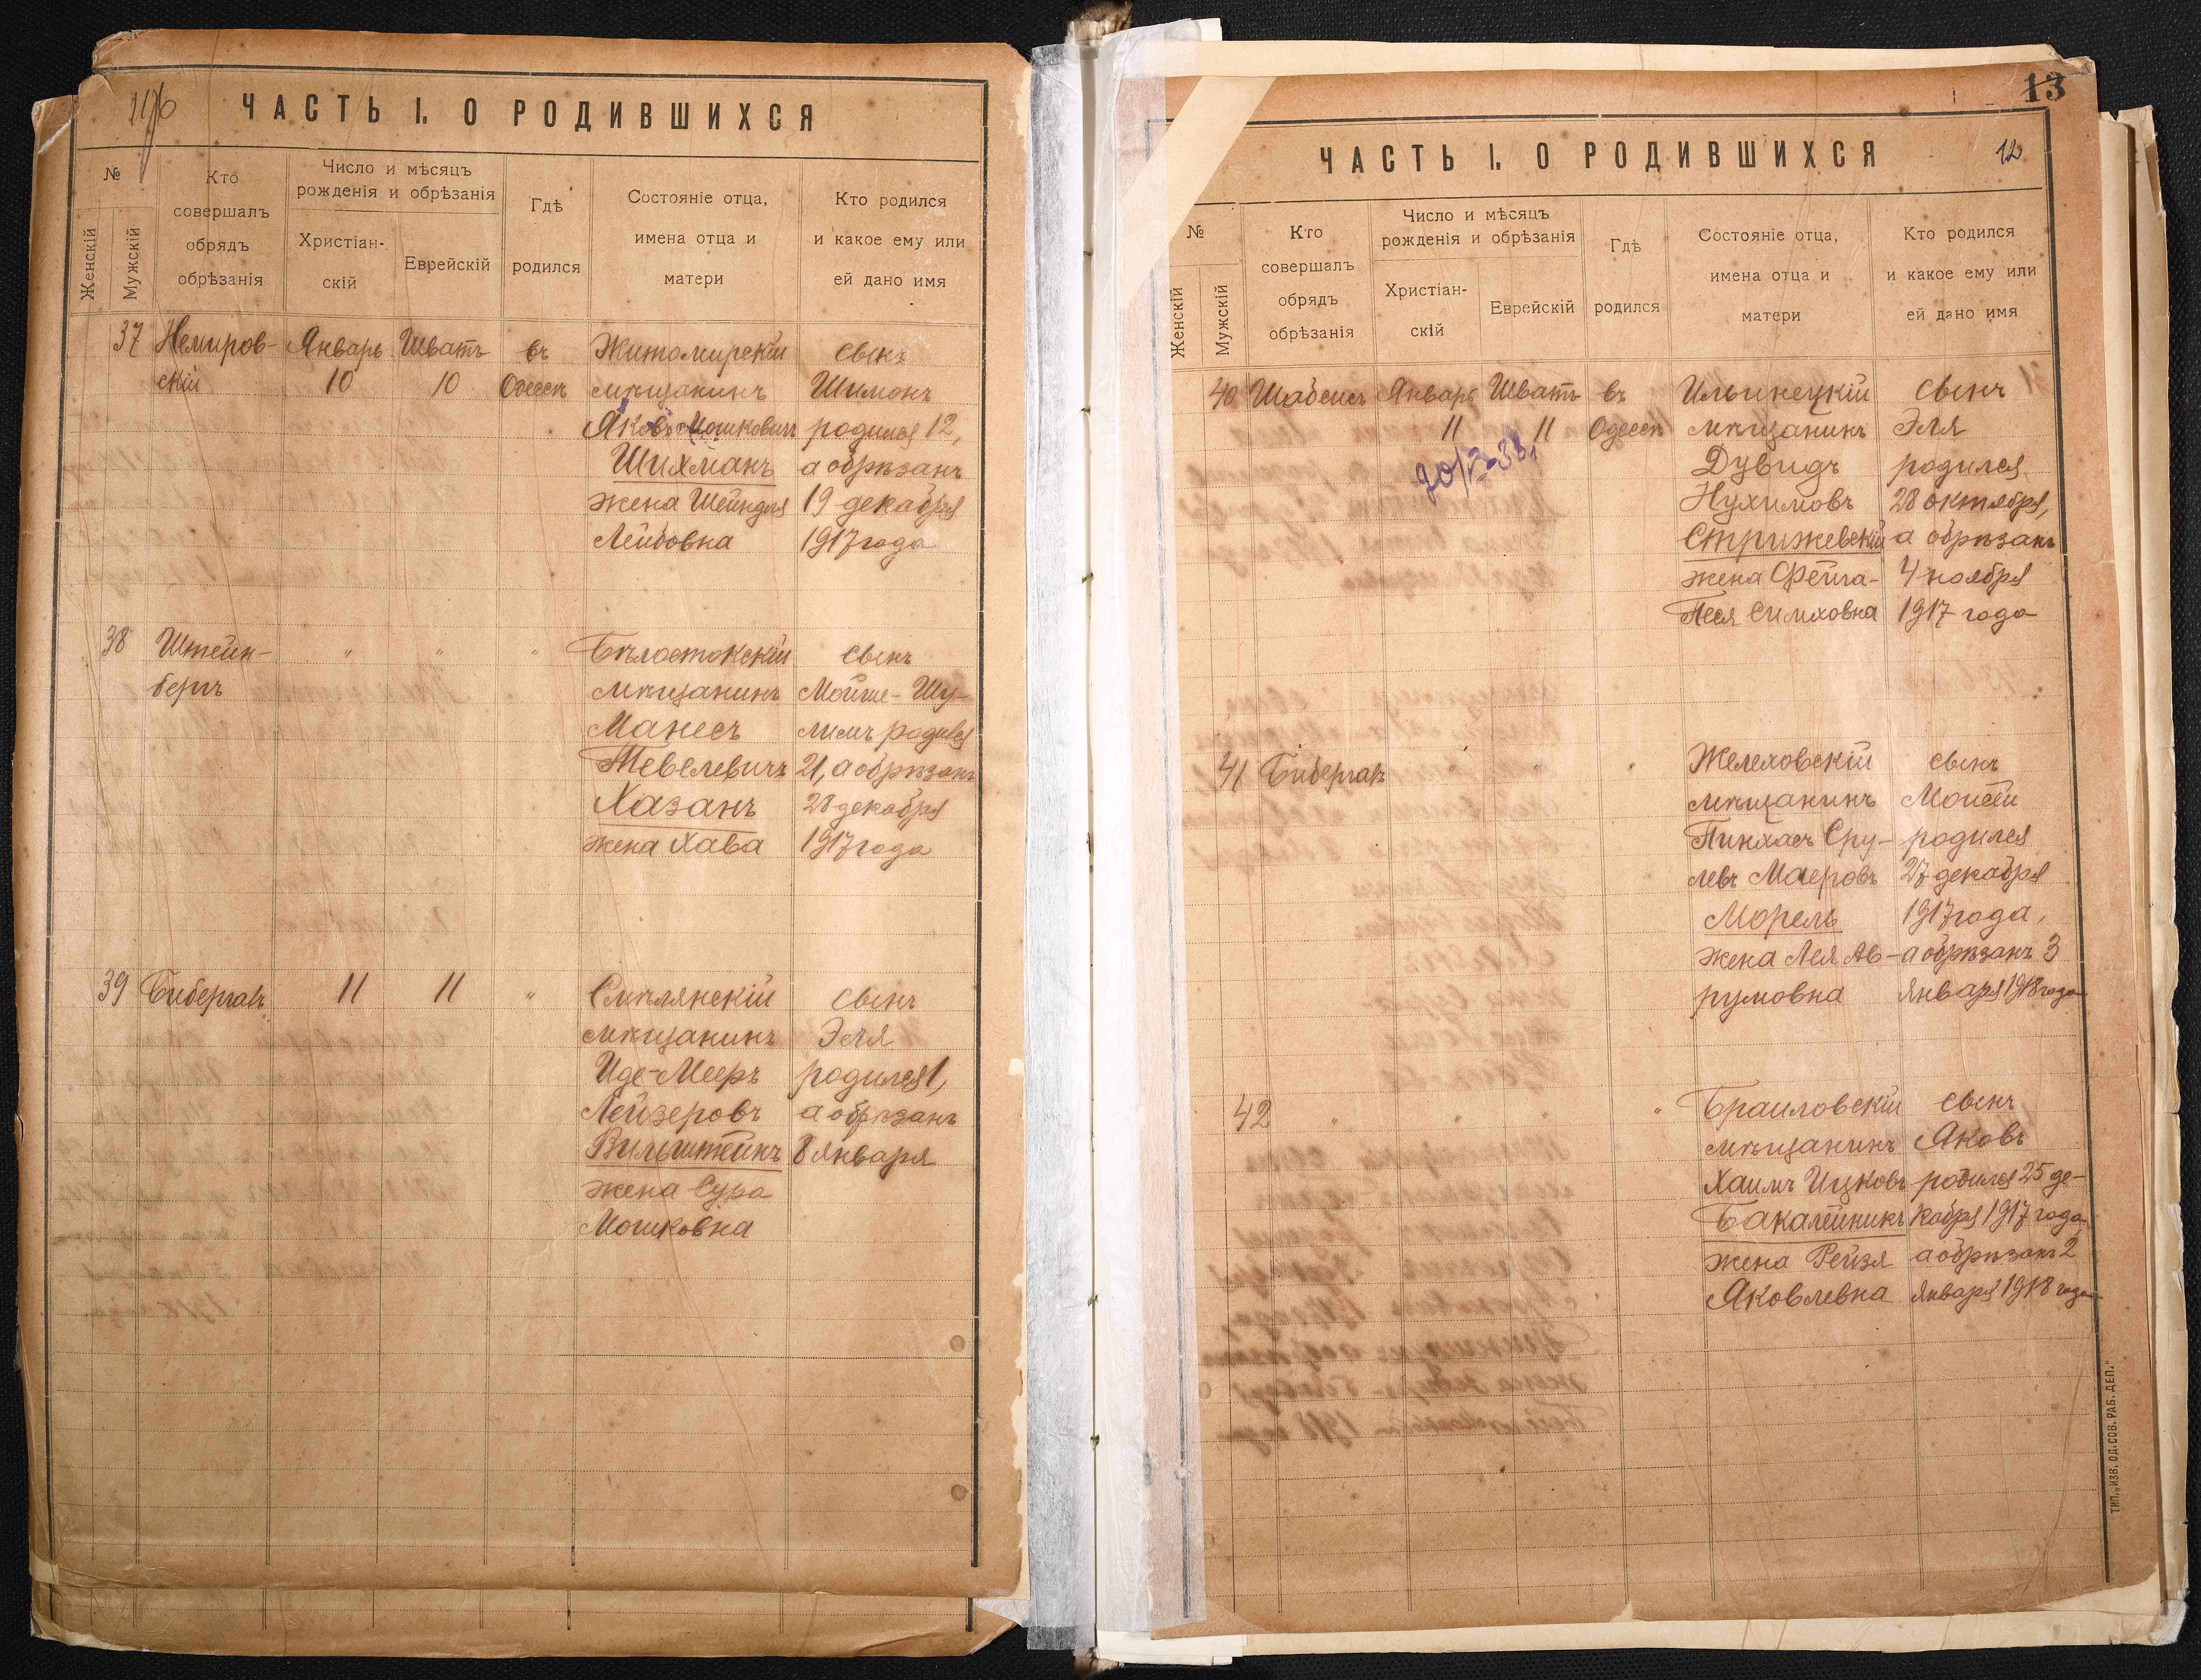 ЧАСТЬ I. О РОДИВШИХСЯ
№
Женскій
Мужскій
Кто совершалъ обрядъ обрѣзанія
Число и мѣсяцъ рожденія и обрѣзанія
Христіан-скій
Еврейскій
Гдѣ родился
Состояніе отца, имена отца и матери
Кто родился и какое ему или ей дано имя
37 Немиров- Январь Шватъ въ Житомирскій сынъ
скій 10 10 Одессѣ мѣщанинъ Шимонъ
Яковъ Мошковичъ родился 12,
Шихманъ а обрѣзанъ
жена Шейндля 19 декабря
Лейбовна 1917 года
38 Штейн- " " " Бѣлостокскій сынъ
бергъ мѣщанинъ Мойше-Шу-
Манесъ лимъ родился
Тевелевичъ 21, а обрѣзанъ
Хазанъ 28 декабря
жена Хава 1917 года
39 Бибергалъ 11 11 " Смѣлянскій сынъ
мѣщанинъ Эля
Иде-Мееръ родился 1,
Лейзеровъ а обрѣзанъ
Вильштейнъ 8 января
жена Сура
Мошковна
13
ЧАСТЬ I. О РОДИВШИХСЯ 12
№
Женскій
Мужскій
Кто совершалъ обрядъ обрѣзанія
Число и мѣсяцъ рожденія и обрѣзанія
Христіан-скій
Еврейскій
Гдѣ родился
Состояніе отца, имена отца и матери
Кто родился и какое ему или ей дано имя
40 Шабсисъ Январь Шватъ въ Ильинецкій сынъ
11 11 Одессѣ мѣщанинъ Эля
Дувидъ родился
Нухимовъ 28 октября,
Стрижевскій а обрѣзанъ
жена Фейга- 4 ноября
Песя Симховна 1917 года
41 Бибергалъ " " " Желеховскій сынъ
мѣщанинъ Моисей
Пинхасъ Сру- родился
левъ Маеровъ 27 декабря
Морель 1917 года,
жена Лея Ав- а обрѣзанъ 3
румовна января 1918 года
42 " " " Браиловскій сынъ
мѣщанинъ Яковъ
Хаимъ Ицковъ родился 25 де-
Бакалейникъ кабря 1917 года,
жена Рейзя а обрѣзанъ 2
Яковлевна января 1918 года
ТИП. „ИЗВ. ОД. СОВ. РАБ. ДЕП."